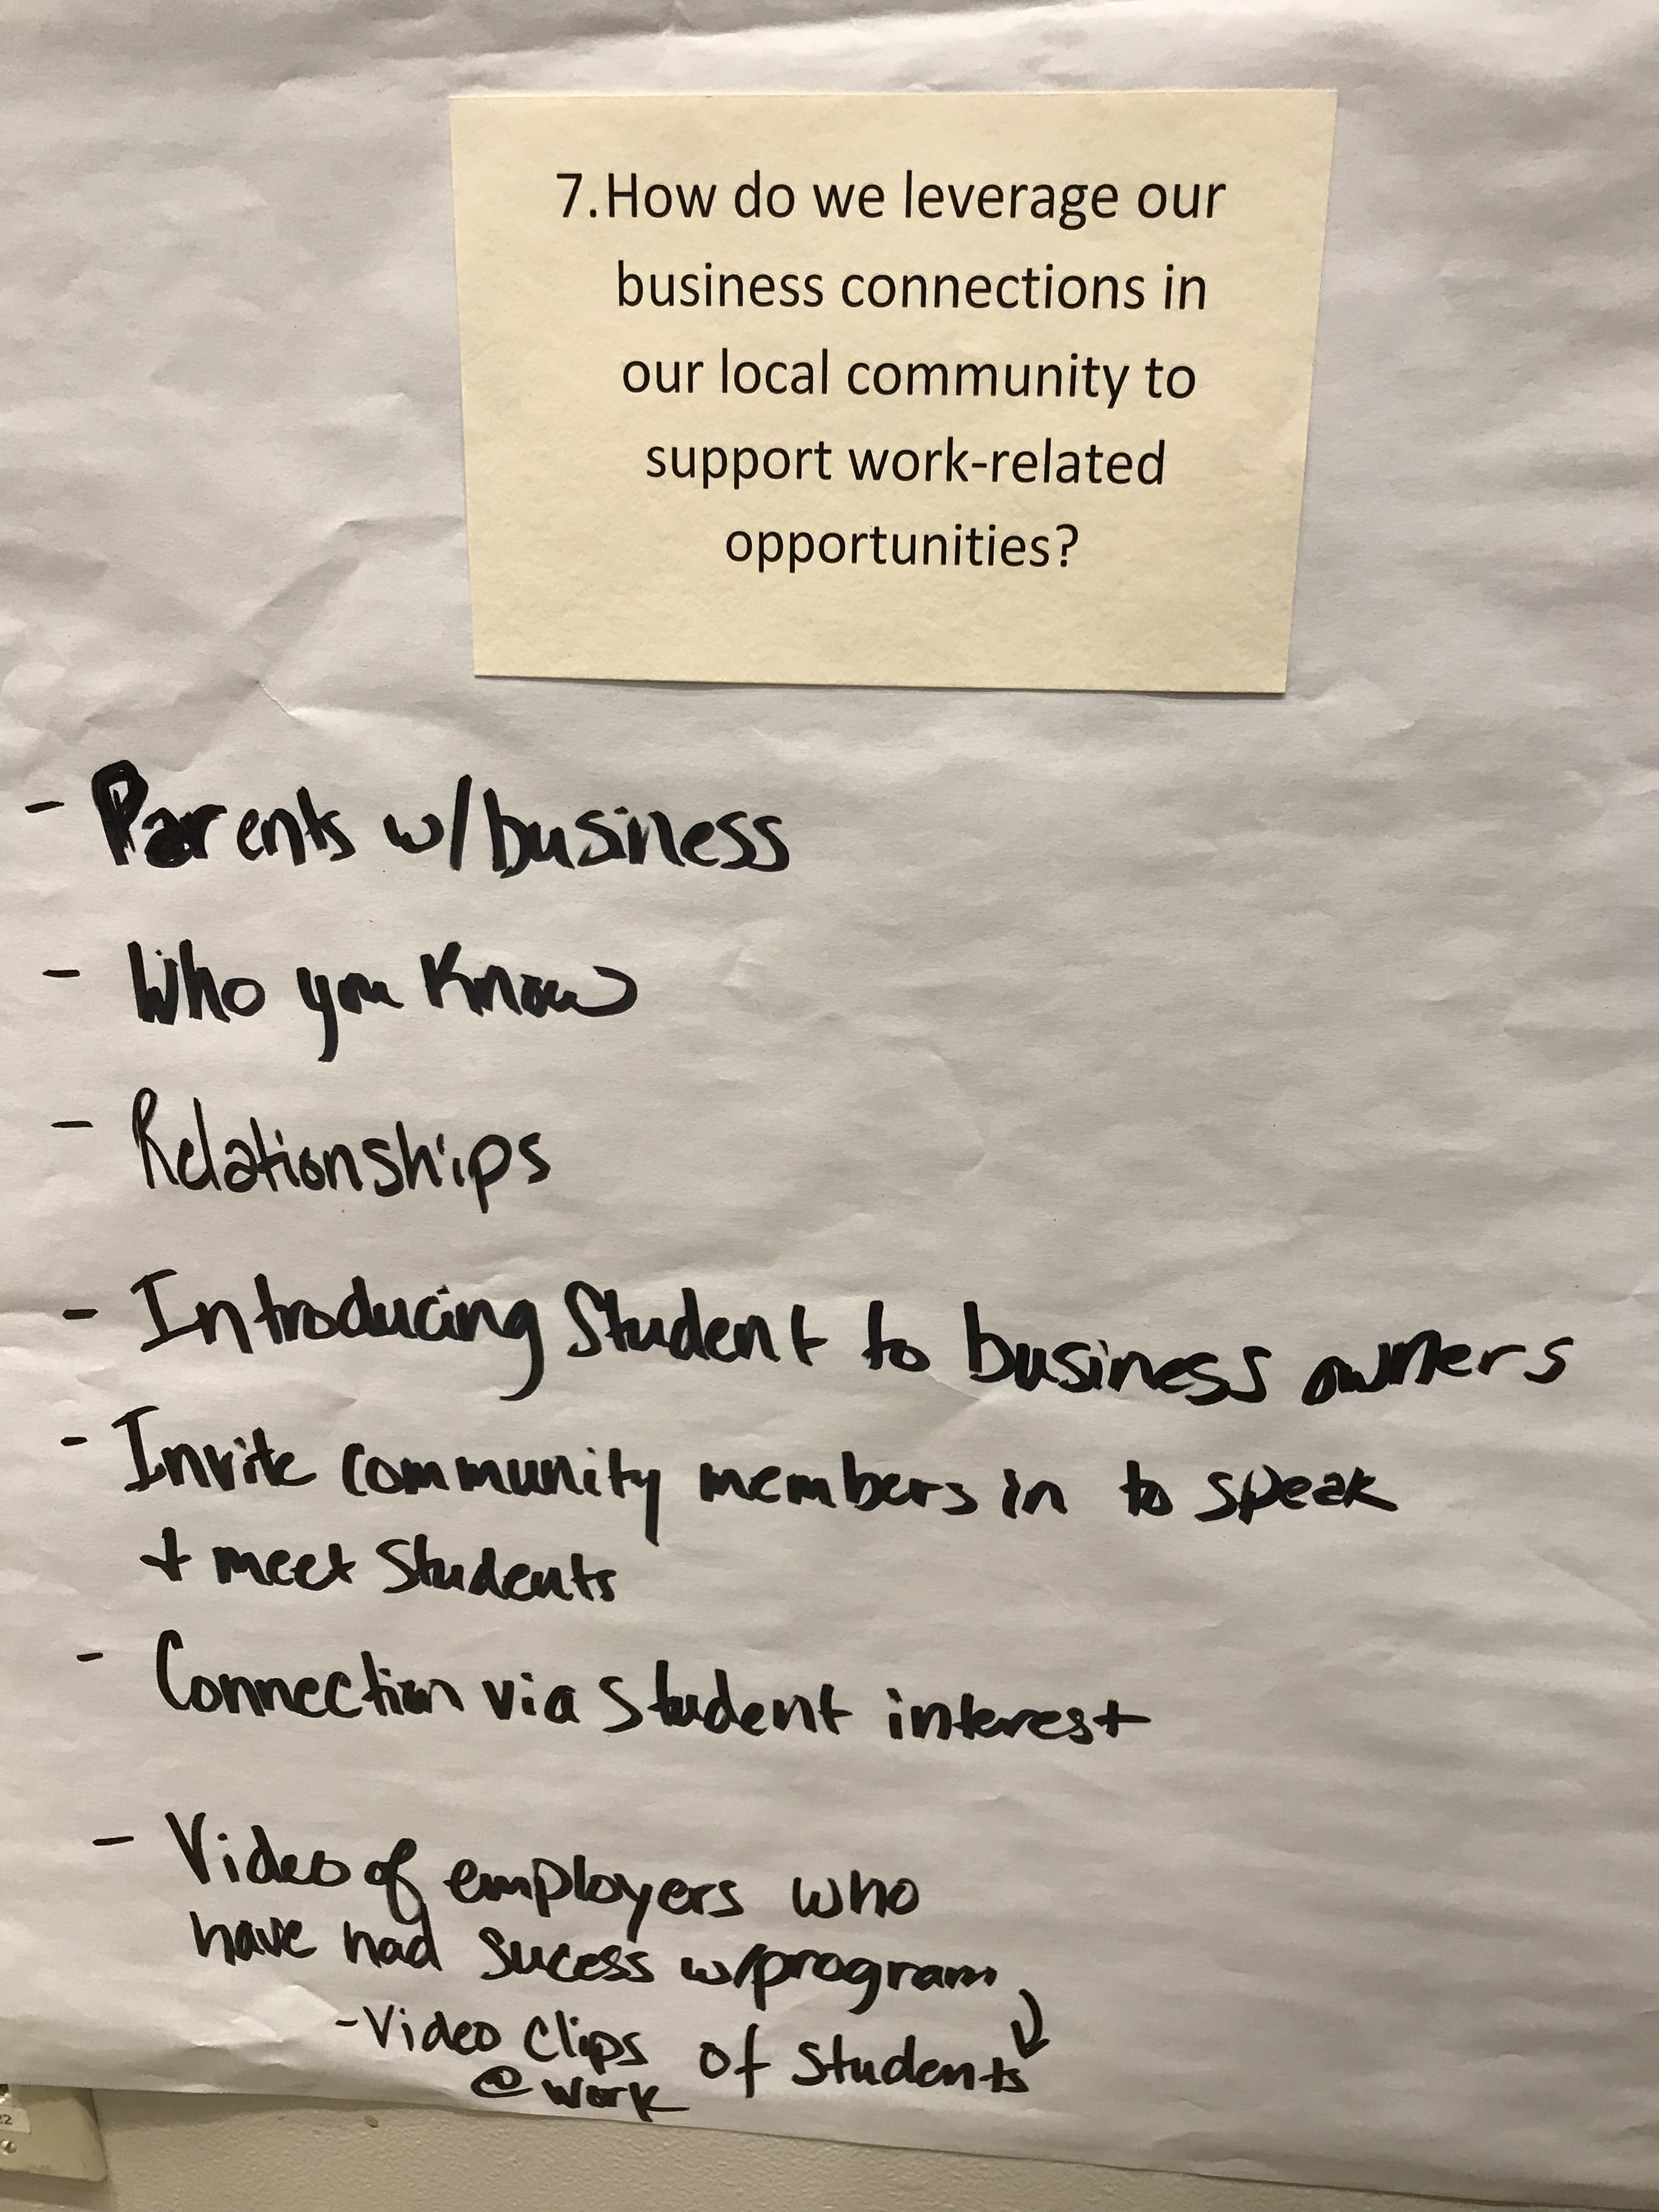 7. How do we leverage our
business connections in
our local community to
support work-related
opportunities?
- Parents w/business
- Who you know
- Relationships
- Introducing Student to business owners
- Invite community members in to speak
+ meet Students
- Connection via Student interest
- Video of employers who
have had sucess w/program
- Video Clips of Students
@ work
22